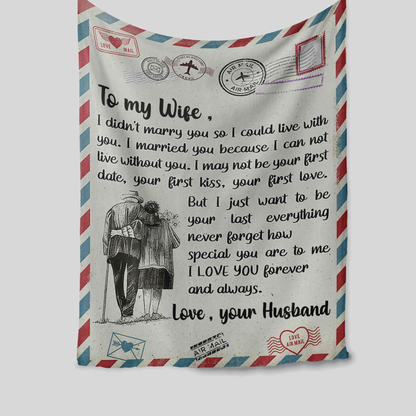 LOVE MAIL
AIR MAIL
AIR-MAIL
To my Wife ,
I didn't marry you so I could live with
you. I married you because I can not
live without you. I may not be your first
date, your first kiss, your first love.
But I just want to be
your last everything
never forget how
special you are to me
I LOVE YOU forever
and always.
Love , your Husband
AIR MAIL
LOVE
AIR MAIL